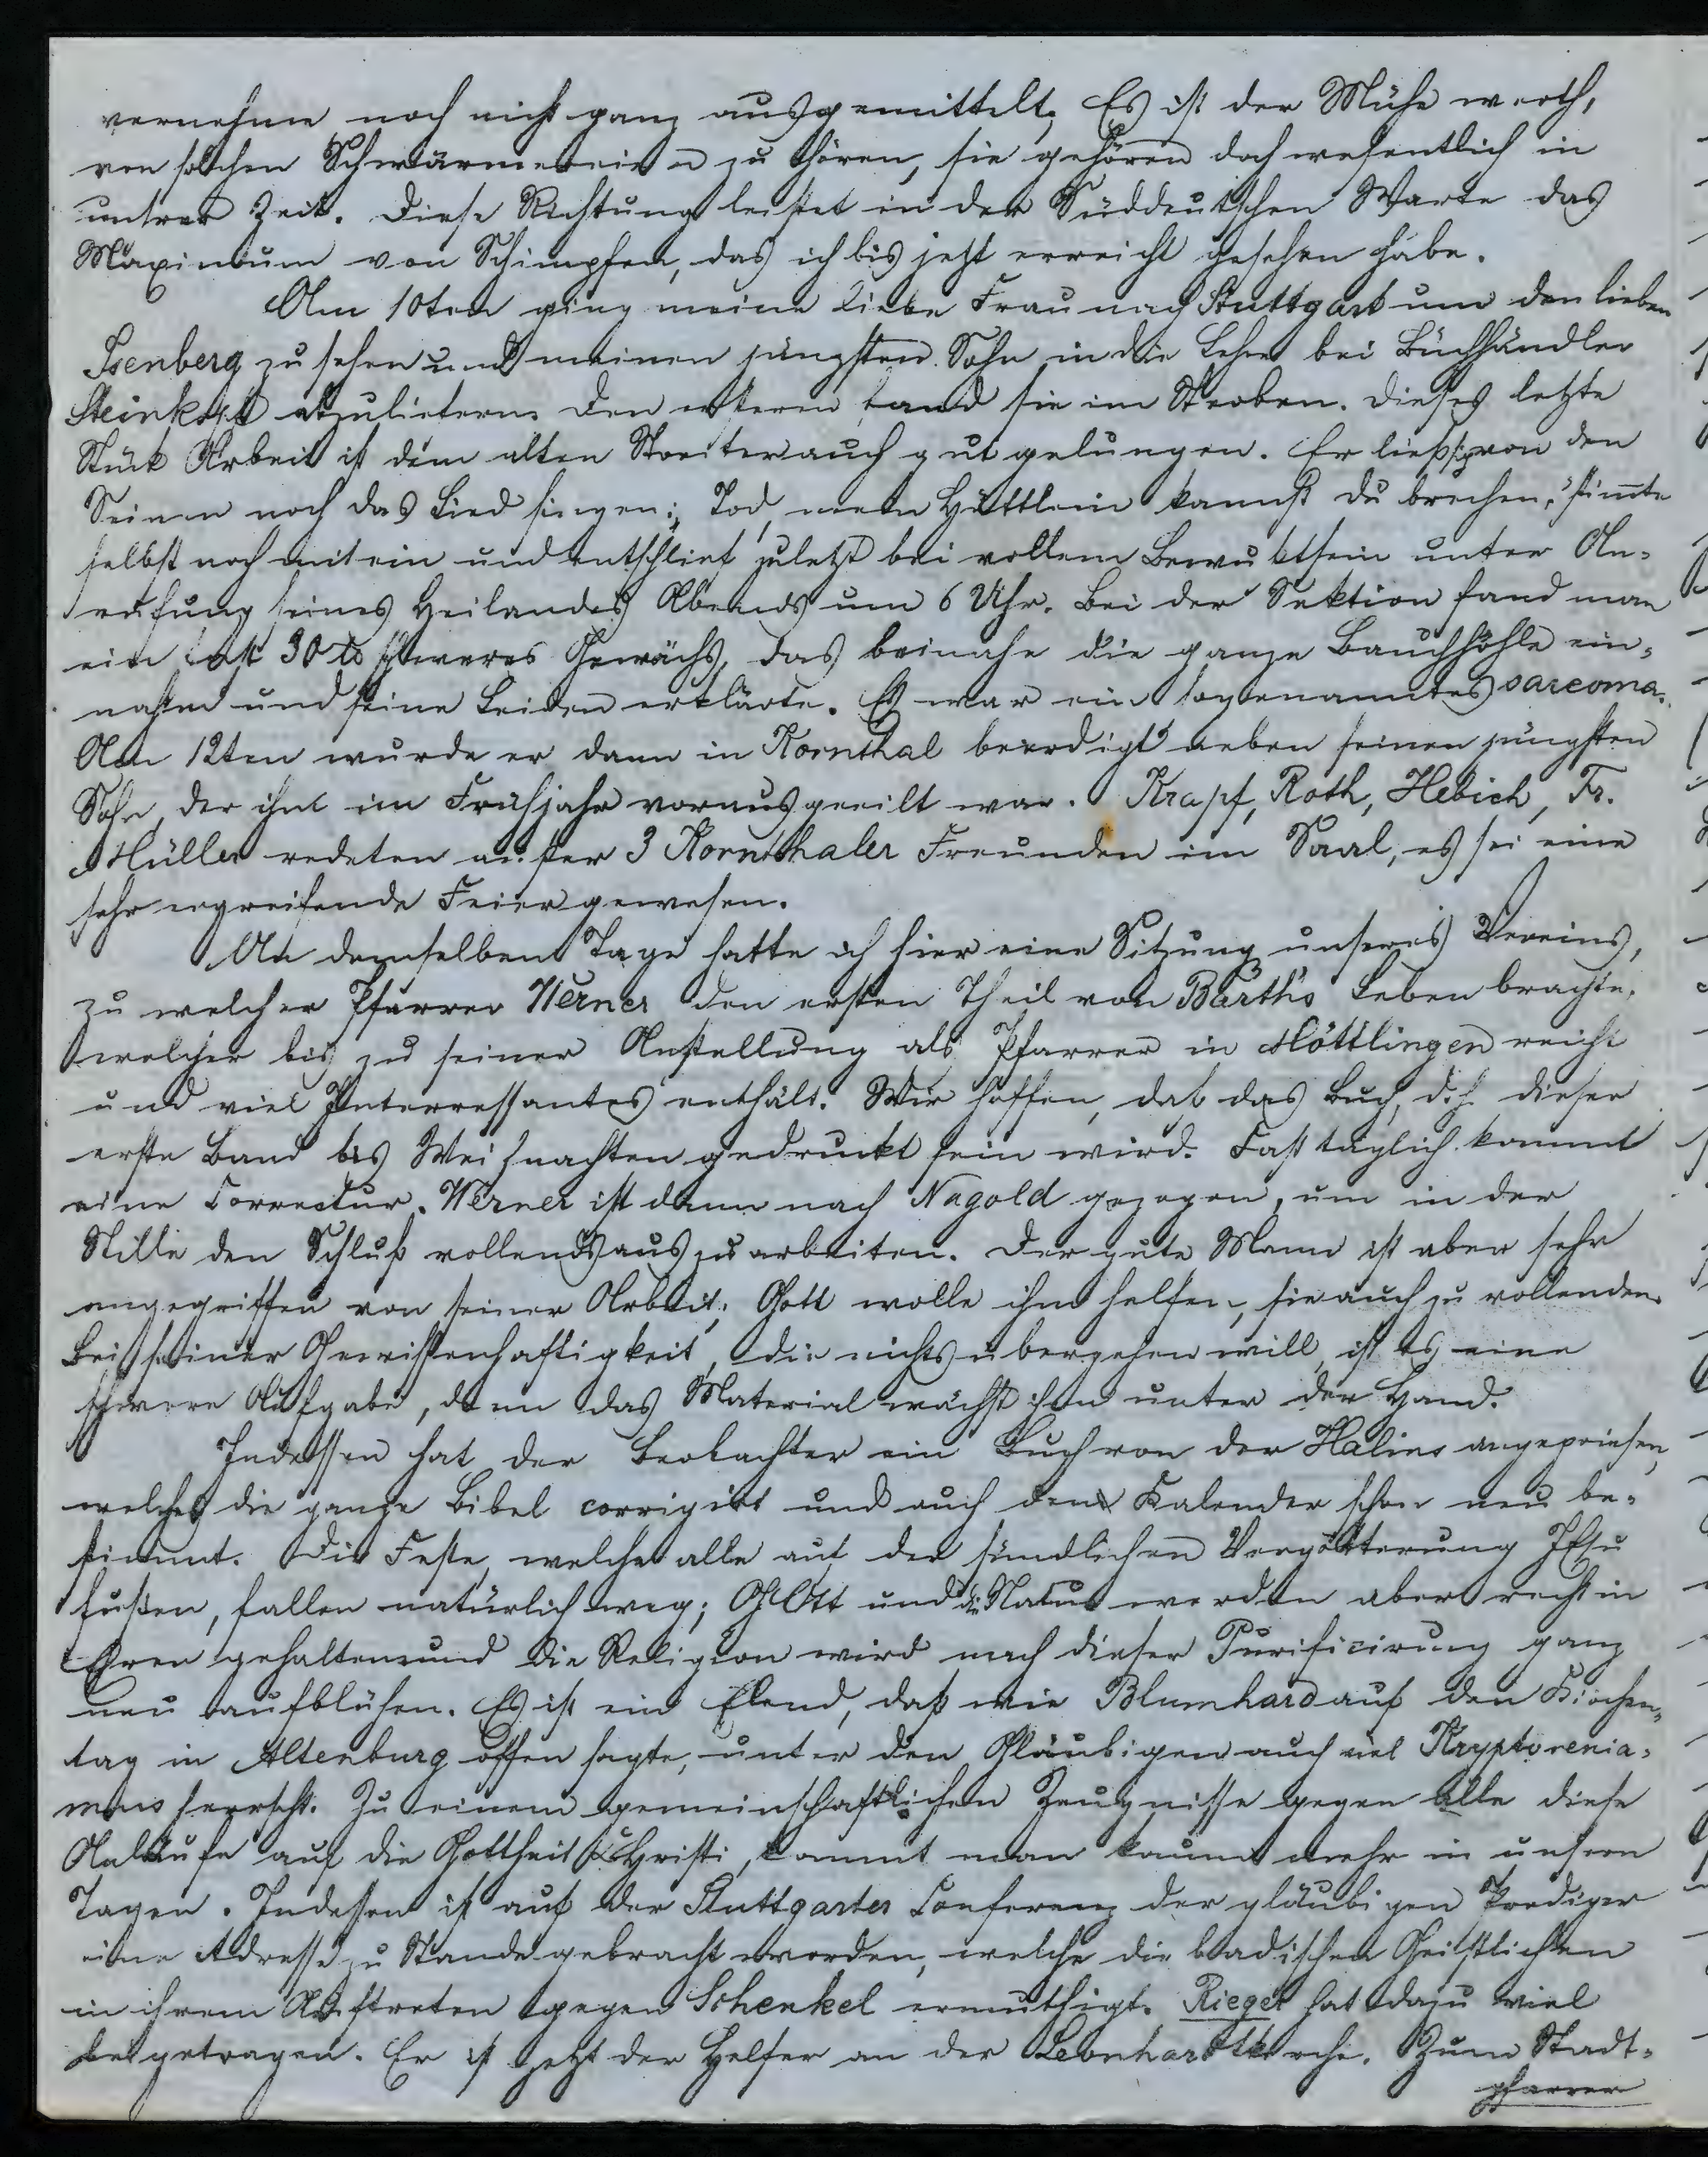 vernehme noch nicht ganz ausgemittelt. Es ist der Mühe werth,
von solchen Schwärmereien zu hören, sie gehören doch wesentlich in
unsrer Zeit. Diese Richtung leistet in der Süddeutschen Warte das
Maximum von Schimpfen, das ich bis jetzt erreicht gesehen habe.
Am 10ten ging meine liebe Frau nach Stuttgart um den lieben
Isenberg zu sehen und meinen jüngsten Sohn in die Lehre bei Buchhändler
Steinkopf abzuliefern. Den ersteren fand sie im Sterben. Dieses letzte
Stück Arbeit ist dem alten Streiter auch gut gelungen. Er ließ sich von den
Seinen noch das Lied singen: "Tod, mein Hüttlein kannst du brechen," stimmte
selbst noch mit ein und entschlief zuletzt bei vollem Bewußtsein unter An-
rufung seines Heilandes Abends um 6 Uhr. Bei der Sektion fand man
ein fast 30 ℔ schweres Gewächs, das beinahe die ganze Bauchhöhle ein-
nahm und seine Leiden erklärte. Es war ein sogenanntes sarcoma.
Am 12ten wurde er dann in Kornthal beerdigt neben seinen jüngsten
Sohn, der ihm im Frühjahr vorausgeeilt war. Krapf, Roth, Hebich, Fr.
Müller redeten außer 3 Kornthaler Freunden im Saal, es sei eine
sehr ergreifende Feier gewesen.
An demselben Tage hatte ich hier eine Sitzung unseres Vereins,
zu welcher Pfarrer Werner den ersten Theil von Barth's Leben brachte,
welcher bis zu seiner Anstellung als Pfarrer in Möttlingen reicht
und viel Interressantes enthält. Wir hoffen, daß das Buch, d.h. dieser
erste Band bis Weihnachten gedruckt sein wird. Fast täglich kommt
eine Correctur. Werner ist dann nach Nagold gezogen, um in der
Stille den Schluß vollends auszuarbeiten. Der gute Mann ist aber sehr
angegriffen von seiner Arbeit; Gott wolle ihm helfen, sie auch zu vollenden.
Bei seiner Gewissenhaftigkeit, die nichts übergehen will, ist es eine
schwere Aufgabe, denn das Material wächst ihm unter der Hand.
Indessen hat der Beobachter ein Buch von der angepriesen,
welches die ganze Bibel corrigirt und auch den Kalender schon neu be-
stimmt. Die Feste, welche alle auf der sündlichen Vergötterung JEsu
fußen, fallen natürlich weg; GOtt und die Natur werden aber recht in
Ehren gehalten und die Religion wird nach dieser Purificirung ganz
neu aufblühen. Es ist ein Elend, daß wie Blumhard auf den Kirchen-
tag in Altenburg offen sagte, unter den Gläubigen auch viel Kryptorenia-
mus herrscht. Zu einem gemeinschaftlichen Zeugnisse gegen alle diese
Anläufe auf die Gottheit Christi, kommt man kaum mehr in unsern
Tagen. Indessen ist auf der Stuttgarter Conferenz der gläubigen Prediger
eine Adresse zu Stande gebracht worden, welche die badischen Geistlichen
in ihrem Auftreten gegen Schenkel ermuthigt. Rieger hat dazu viel
beigetragen. Er ist jetzt der Helfer an der Leonhardtkirche. Zum Stadt-
pfarrer